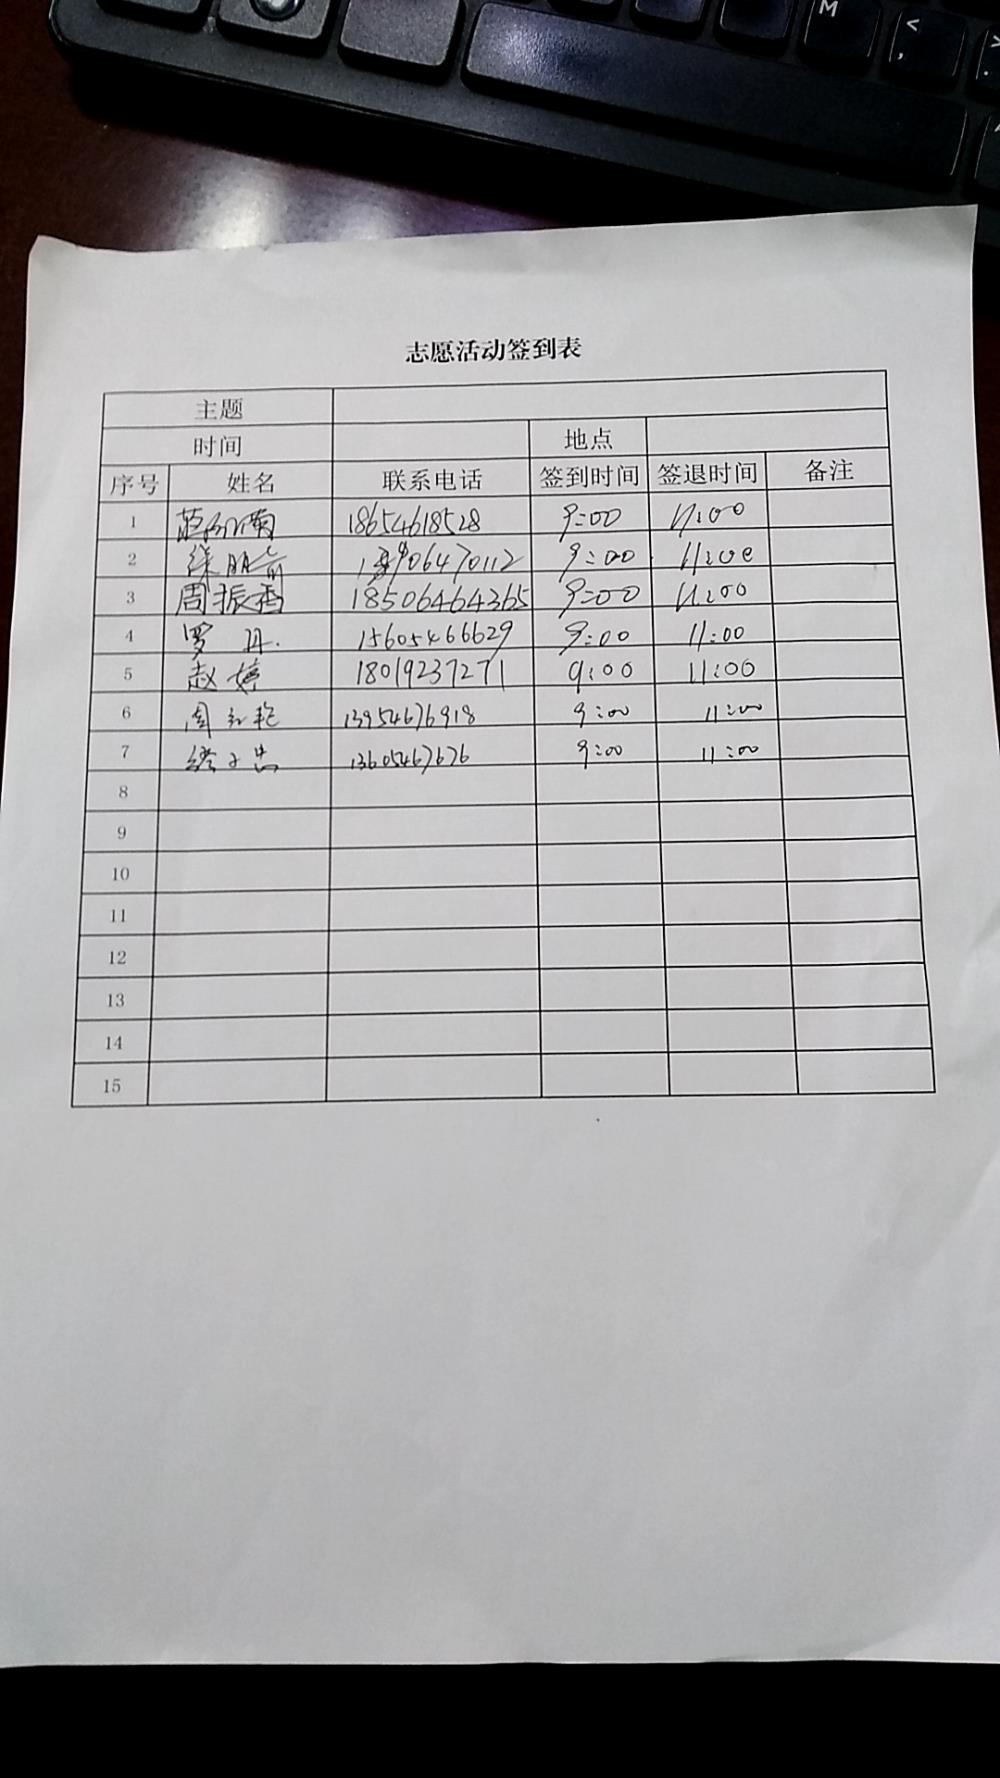 M
<
,
志愿活动签到表
主题
时间 地点
序号 姓名 联系电话 签到时间 签退时间 备注
1 18654618528 9:00 11:00
2 9:00 11:00
3 周振香 18506464365 9:00 11:00
4 罗丹 15605466629 9:00 11:00
5 赵婷 18019237271 9:00 11:00
6 周红艳 13954676918 9:00 11:00
7 13605467676 9:00 11:00
8
9
10
11
12
13
14
15